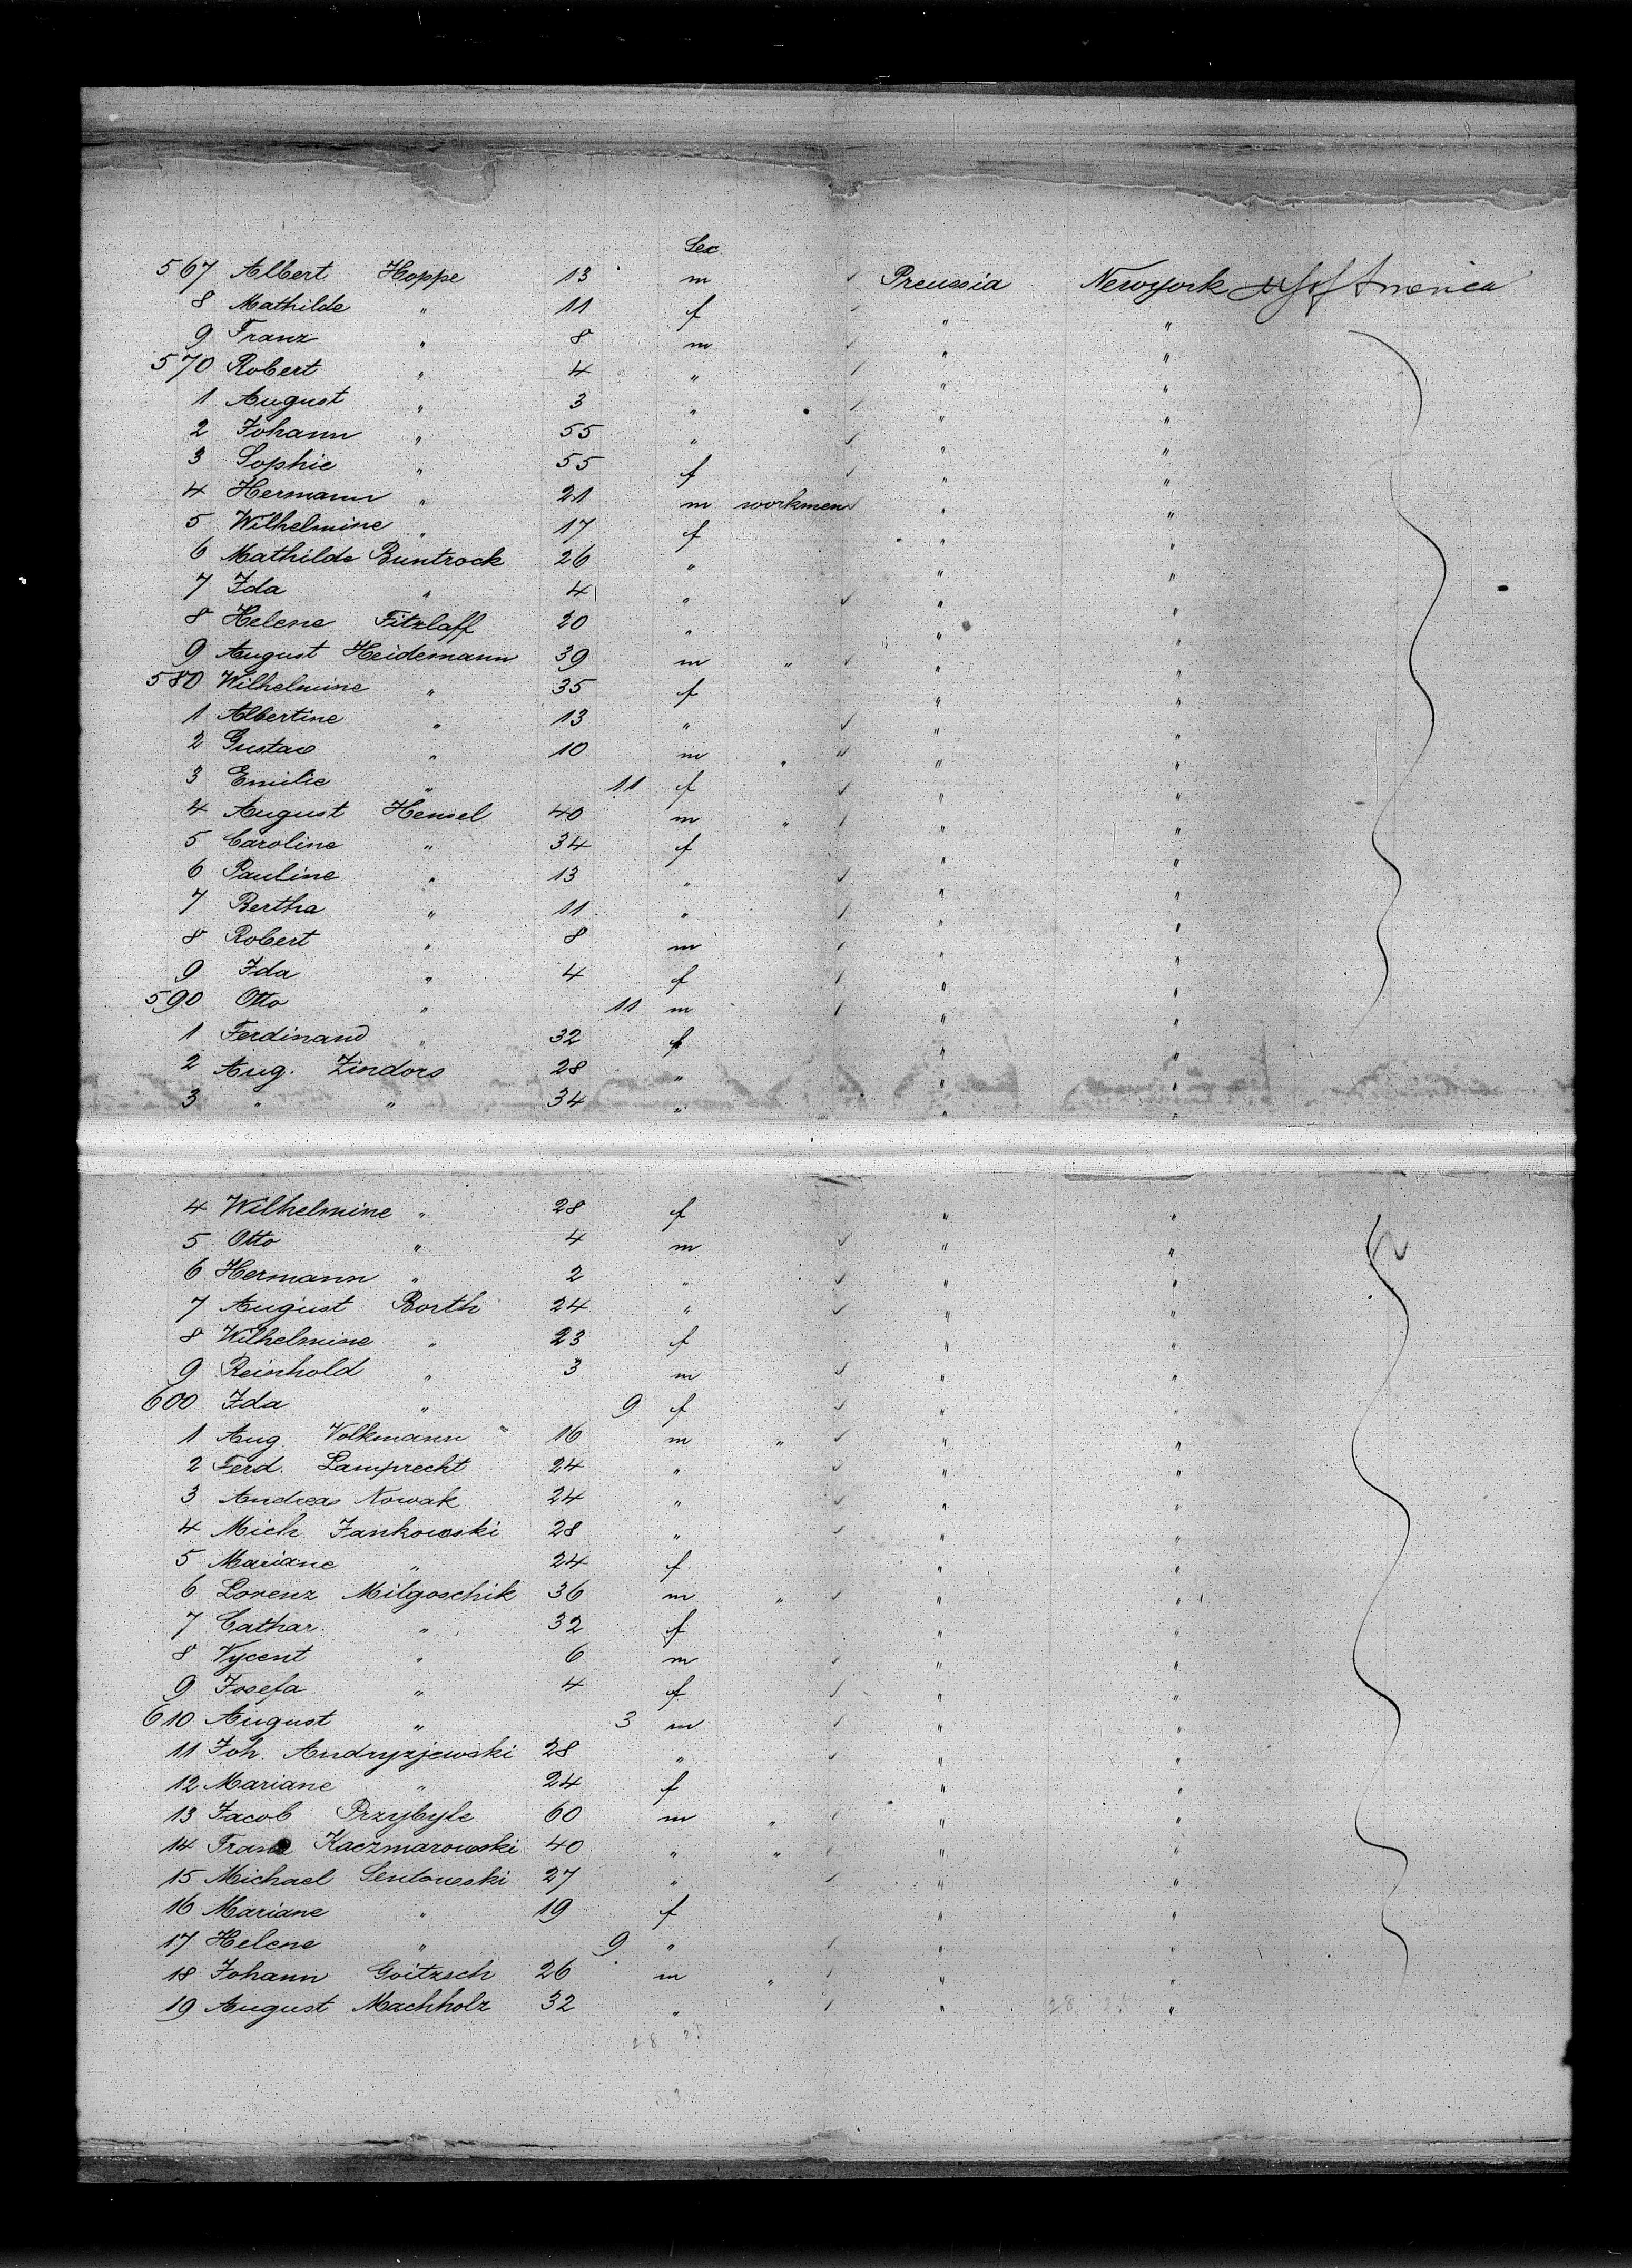 Sex
567 Albert Hoppe 13 m ✓ Preussia Newyork U S of America
8 Mathilde " 11 f ✓ " "
9 Franz " 8 m ✓ " "
570 Robert " 4 " ✓ " "
1 August " 3 " ✓ " "
2 Johann " 55 " ✓ " "
3 Sophie " 55 f ✓ " "
4 Hermann " 21 m workmen " "
5 Wilhelmine " 17 f " "
6 Mathilde Buntrock 26 " " "
7 Ida " 4 " ✓ " "
8 Helene Fitzlaff 20 " " "
9 August Heidemann 39 m " ✓ " "
580 Wilhelmine " 35 f " "
1 Albertine " 13 " ✓ " "
2 Gustav " 10 m " ✓ " "
3 Emilie " 11 f ✓ " "
4 August Hensel 40 m " ✓ " "
5 Caroline " 34 f " "
6 Pauline " 13 " ✓ " "
7 Bertha " 11 " ✓ " "
8 Robert " 8 m ✓ " "
9 Ida " 4 f ✓ " "
590 Otto " 11 m ✓ " "
1 Ferdinand " 32 f " "
2 Aug. Zindors 28 " " "
3 " " 34 " " "
4 Wilhelmine " 28 f " "
5 Otto " 4 m ✓ " "
6 Hermann " 2 " ✓ " "
7 August Borth 24 " ✓ " "
8 Wilhelmine " 23 f " "
9 Reinhold " 3 m ✓ " "
600 Ida " 9 f ✓ " "
1 Aug. Volkmann 16 m " ✓ " "
2 Ferd. Lamprecht 24 " ✓ " "
3 Andreas Nowak 24 " ✓ " "
4 Mich. Jankowski 28 " ✓ " "
5 Mariane " 24 f " "
6 Lorenz Milgoschik 36 m " ✓ " "
7 Cathar. " 32 f " "
8 Vycent " 6 m ✓ " "
9 Josefa " 4 f ✓ " "
610 August " 3 m ✓ " "
11 Joh. Andryzjewski 28 " ✓ " "
12 Mariane " 24 f " "
13 Jacob Przybyle 60 m " ✓ " "
14 Franz Kaczmarowski 40 " " ✓ " "
15 Michael Sentowski 27 " ✓ " "
16 Mariane " 19 f " "
17 Helene " 9 " ✓ " "
18 Johann Goitzsch 26 m " ✓ " "
19 August Machholz 32 " ✓ " "